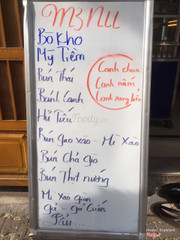 MENU
Bò Kho
Mỹ Tiềm
Bún Thái
Bánh Canh
Hủ Tiếu
Bún gạo xào - Mì Xào
Bún Chả Giò
Bún Thịt nướng
Mì Xào Giòn
Gỏi Cuốn
Canh chua
Canh nấm
Canh rong biển
Foody.vn